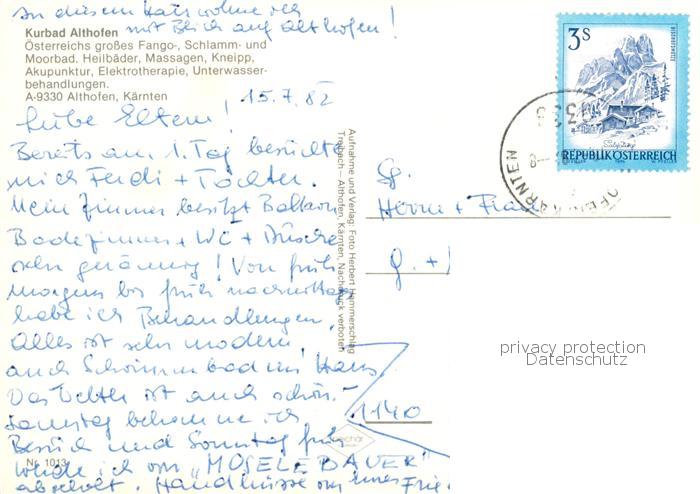 In diesem Haus wohne ich
mit Blick auf Althofen!
Kurbad Althofen
Österreichs großes Fango-, Schlamm- und
Moorbad. Heilbäder, Massagen, Kneipp,
Akupunktur, Elektrotherapie, Unterwasser-
behandlungen.
A-9330 Althofen, Kärnten
15.7.82
Liebe Eltern!
Bereits am 1. Tag besuchte
mich Ferdi + Tochter.
Mein Zimmer besitzt Balkon
Badezimmer + WC + Dusche
sehr geräumig! Von früh
morgens bis früh nachmittag
habe ich Behandlungen.
Alles ist sehr modern,
auch Schwimmbad im Haus.
Das Wetter ist auch schön.
Samstag bekomme ich
Besuch und Sonntag früh
werde ich vom „MOSELEBAUER"
abgeholt. Handküsse von
Nr. 1013
Aufnahme und Verlag: Foto Herbert Hammerschlag
Treibach – Althofen, Kärnten, Nachdruck verboten
3S
REPUBLIK ÖSTERREICH
KÄRNTEN
Herrn + Frau
1140
privacy protection
Datenschutz